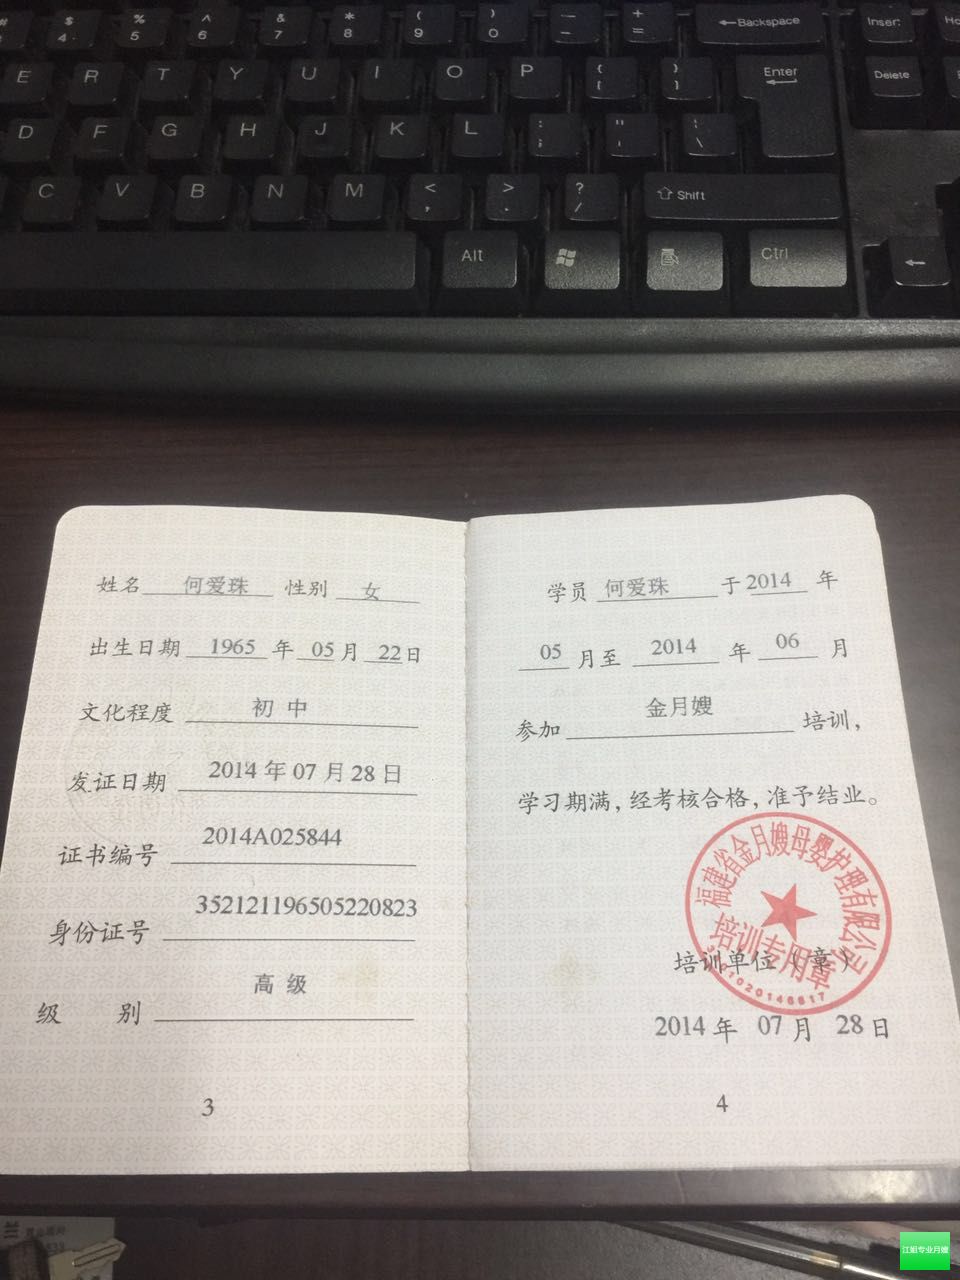 $ 4
% 5
^ 6
& 7
* 8
( 9
) 0
— -
+ =
←Backspace
Insert
E R T Y U I O P { [ } ]
Enter
Delete
D F G H J K L : ; " ' | \
C V B N M < , > . ? /
Shift
Alt
Ctrl
←
姓名 何爱珠 性别 女
出生日期 1965 年 05 月 22 日
文化程度 初 中
发证日期 2014 年 07 月 28 日
证书编号 2014A025844
身份证号 352121196505220823
级 别 高 级
3
学员 何爱珠 于 2014 年
05 月至 2014 年 06 月
参加 金月嫂 培训，
学习期满，经考核合格，准予结业。
福建省金月嫂母婴护理有限公司
培训专用章
培训单位（章）
2014 年 07 月 28 日
4
江姐专业月嫂